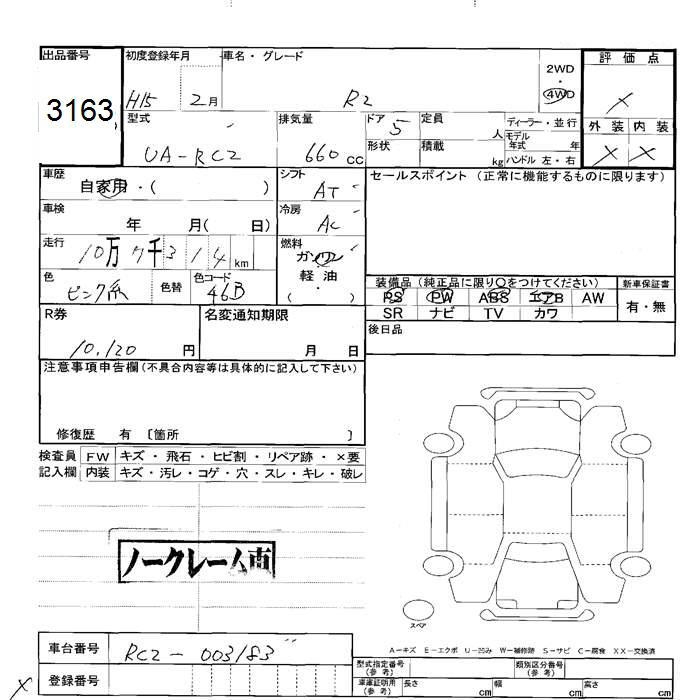 出品番号 初度登録年月 車名・グレード 評価点
3163 H15 2月 R2 2WD・4WD ×
型式 排気量 ドア 5 定員 人 ディーラー・並行 外装 内装
UA-RC2 660cc 形状 積載 kg モデル年式 年 ハンドル 左・右 × ×
車歴 シフト セールスポイント (正常に機能するものに限ります)
自家用・( ) AT
車検 冷房
年 月( 日) AC
走行 燃料
10万7千314km ガソリン・軽油・( )
色 色替 色コード 装備品 (純正品に限り○をつけてください) 新車保証書
ピンク系 46B PS PW ABS エアB AW 有・無
SR ナビ TV カワ
R券 名変通知期限 後日品
10.120円 月 日
注意事項申告欄(不具合内容等は具体的に記入して下さい)
修復歴 有 〔箇所 〕
検査員 FW キズ・飛石・ヒビ割・リペア跡・×要
記入欄 内装 キズ・汚レ・コゲ・穴・スレ・キレ・破レ
ノークレーム車
スペア
A-キズ E-エクボ U-凹み W-補修跡 S-サビ C-腐食 XX-交換済
車台番号 RC2-003183
登録番号
型式指定番号(参考) 類別区分番号(参考)
車庫証明用(参考) 長さ cm 幅 cm 高さ cm
×